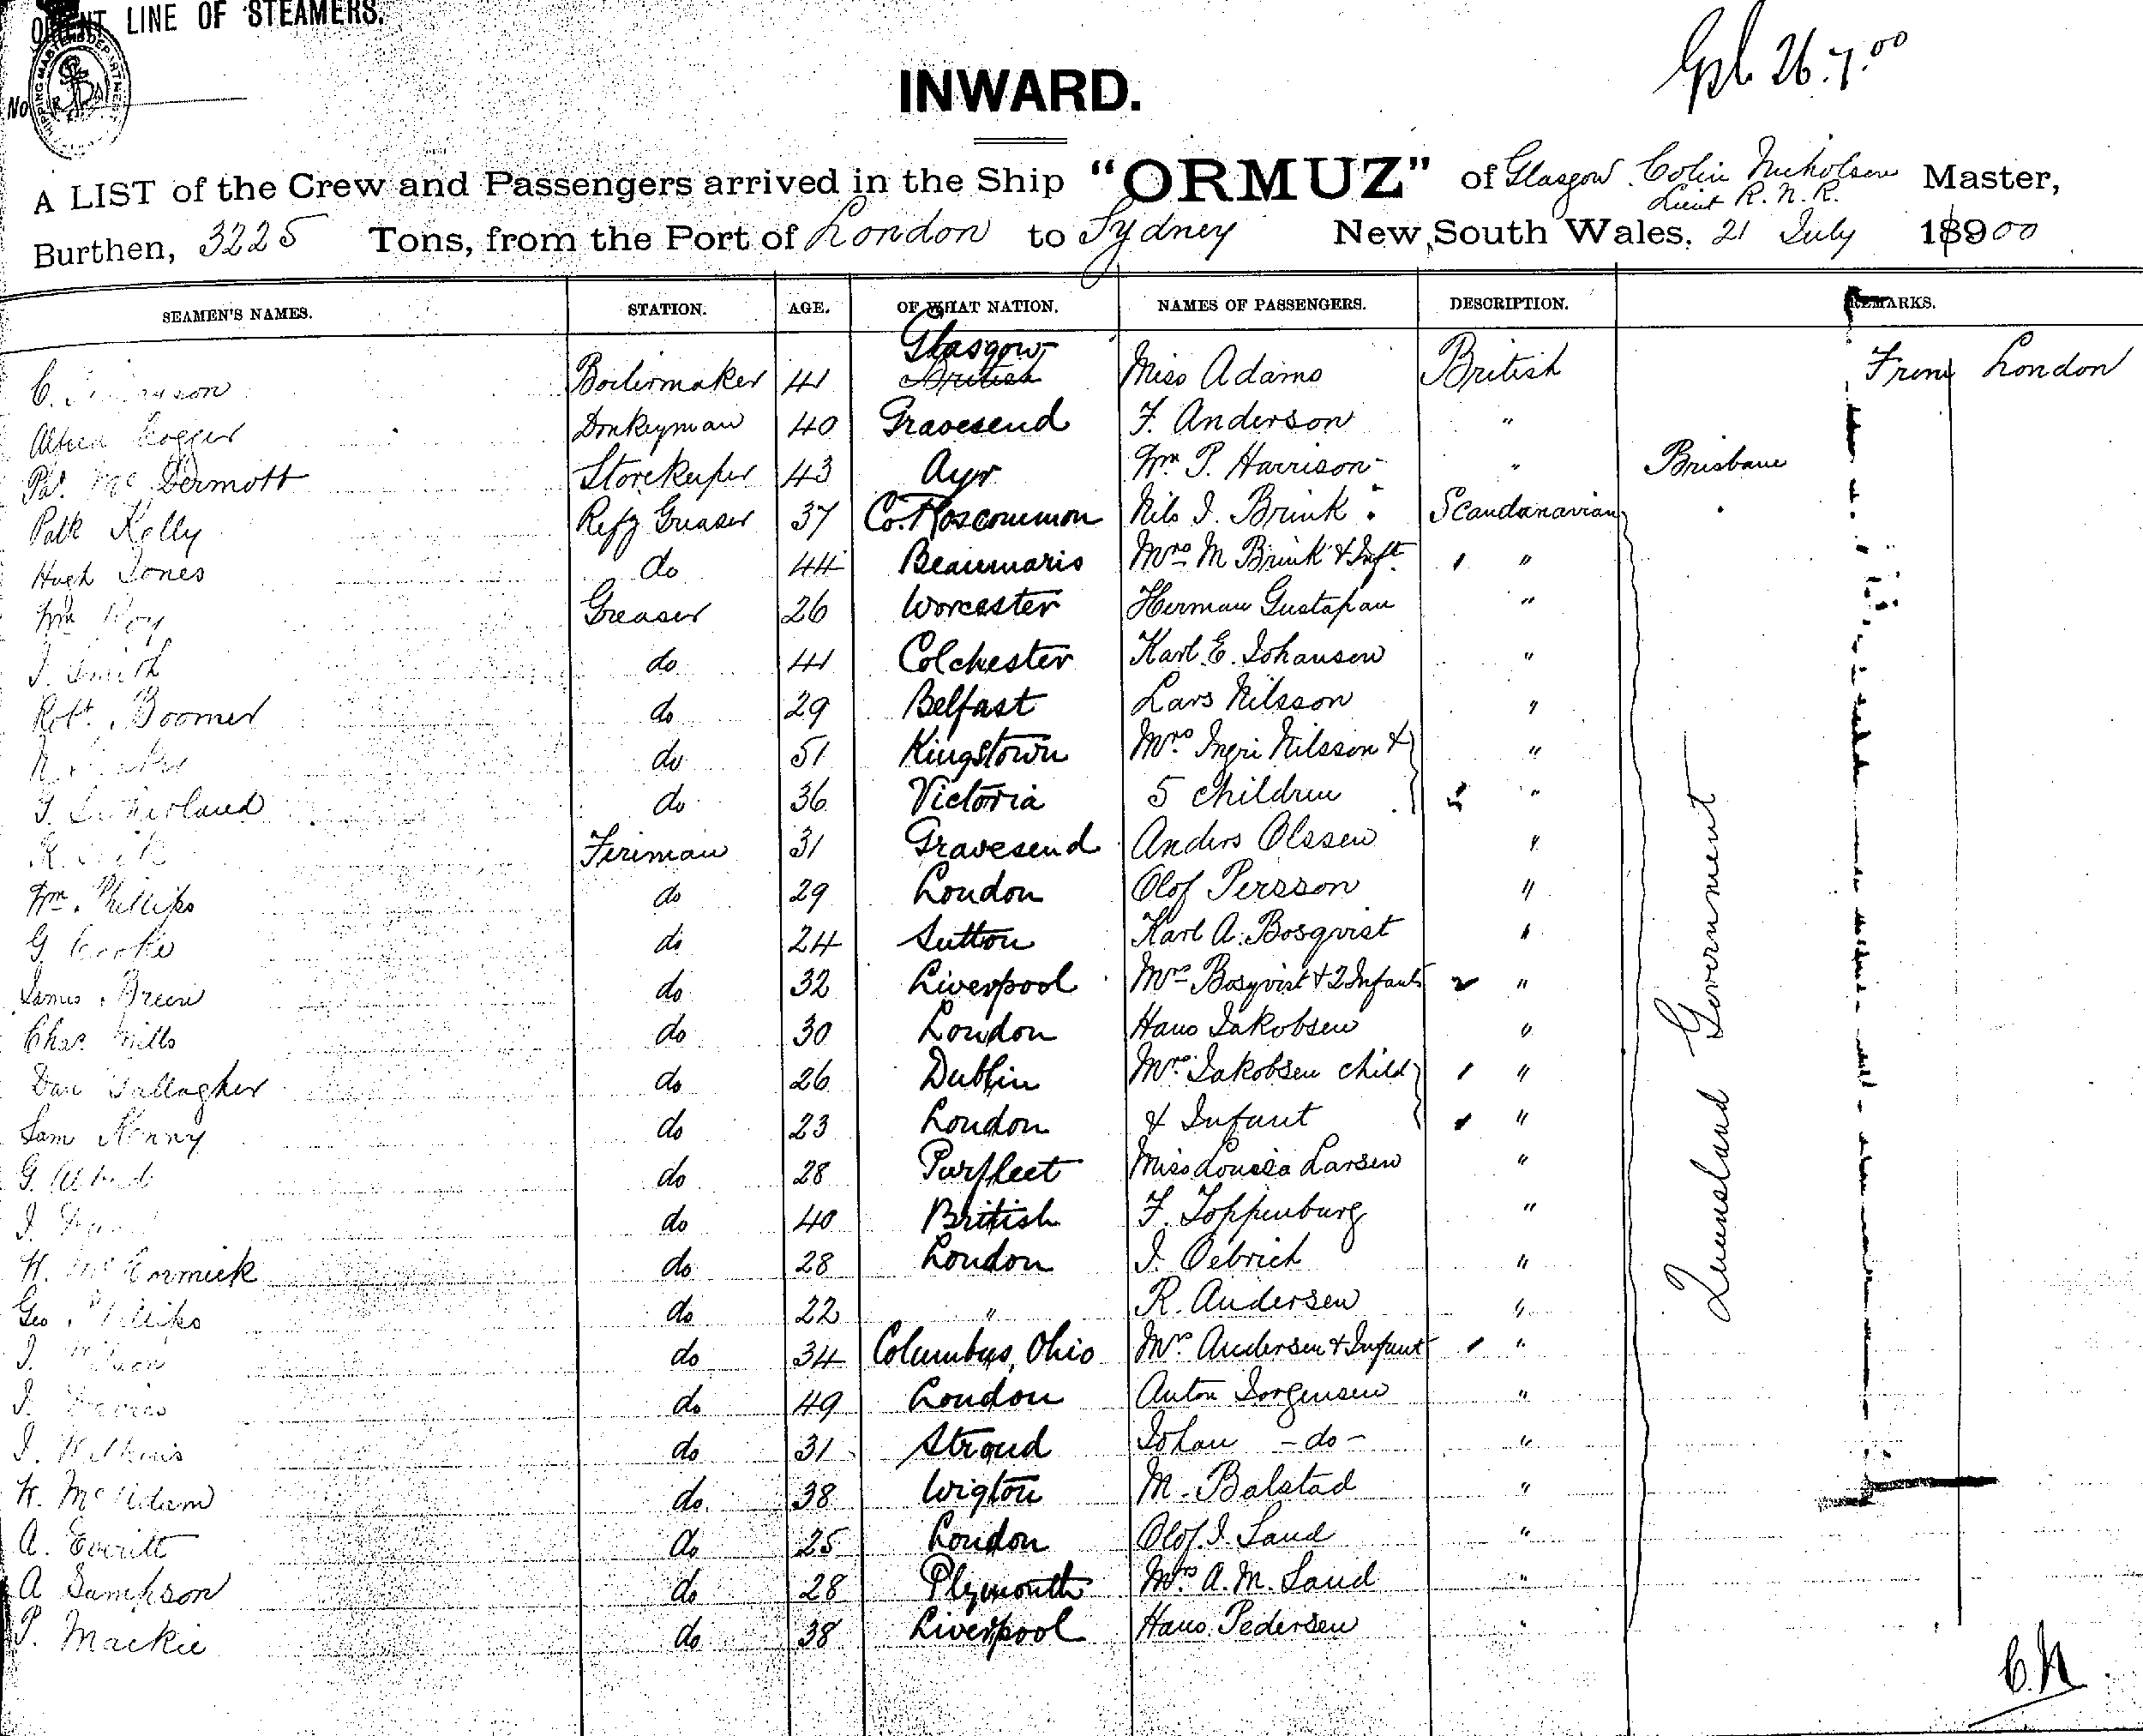 ORIENT LINE OF STEAMERS.
No
Gpl. 26.7.00
INWARD.
A LIST of the Crew and Passengers arrived in the Ship "ORMUZ" of Glasgow Colin Nicholson Master,
Lieut R.N.R.
Burthen, 3225 Tons, from the Port of London to Sydney New South Wales, 21 July 18900
SEAMEN'S NAMES. STATION. AGE. OF WHAT NATION. NAMES OF PASSENGERS. DESCRIPTION. REMARKS.
Glasgow
C. Boilermaker 41 British Miss Adams British From London
Alfred Donkeyman 40 Gravesend F. Anderson "
Pat. McDermott Storekeeper 43 Ayr Wm P. Harrison " Brisbane
Patk Kelly Refg Greaser 37 Co. Roscommon Nils I. Brink Scandanavian
Hugh Jones do 44 Beaumaris Mrs M Brink & Inft. 1 "
Wm Roy Greaser 26 Worcester Herman Gustafsan "
J. Smith do 41 Colchester Karl E. Johansen "
Robt. Boomer do 29 Belfast Lars Nilsson "
do 51 Kingstown Mrs Ingri Nilsson & "
J. Sutherland do 36 Victoria 5 children 5 "
Fireman 31 Gravesend Anders Olssen "
Wm. Phillips do 29 London Olof Persson "
G. Cooke do 24 Sutton Karl A. Bosqvist "
James Breen do 32 Liverpool Mrs Bosqvist & 2 Infants 2 "
Chas. Mills do 30 London Hans Jakobsen "
Dan Gallagher do 26 Dublin Mrs Jakobsen child 1 "
Sam Kenny do 23 London & Infant 1 "
G. do 28 Purfleet Miss Louisa Larsen "
J. do 40 British F. Toppenburg "
H. McCormick do 28 London J. Oebrich "
Geo. Phillips do 22 " R. Andersen "
J. do 34 Columbus, Ohio Mrs Andersen & Infant 1 "
J. do 49 London Anton Jorgensen "
J. Wilkins do 31 Stroud Johan - do - "
H. McAdam do 38 Wigton M. Balstad "
A. Everitt do 25 London Olof. I. Sand "
A Sampson do 28 Plymouth Mrs A. M. Sand "
P. Mackie do 38 Liverpool Hans Pedersen "
Queensland Government
C.N